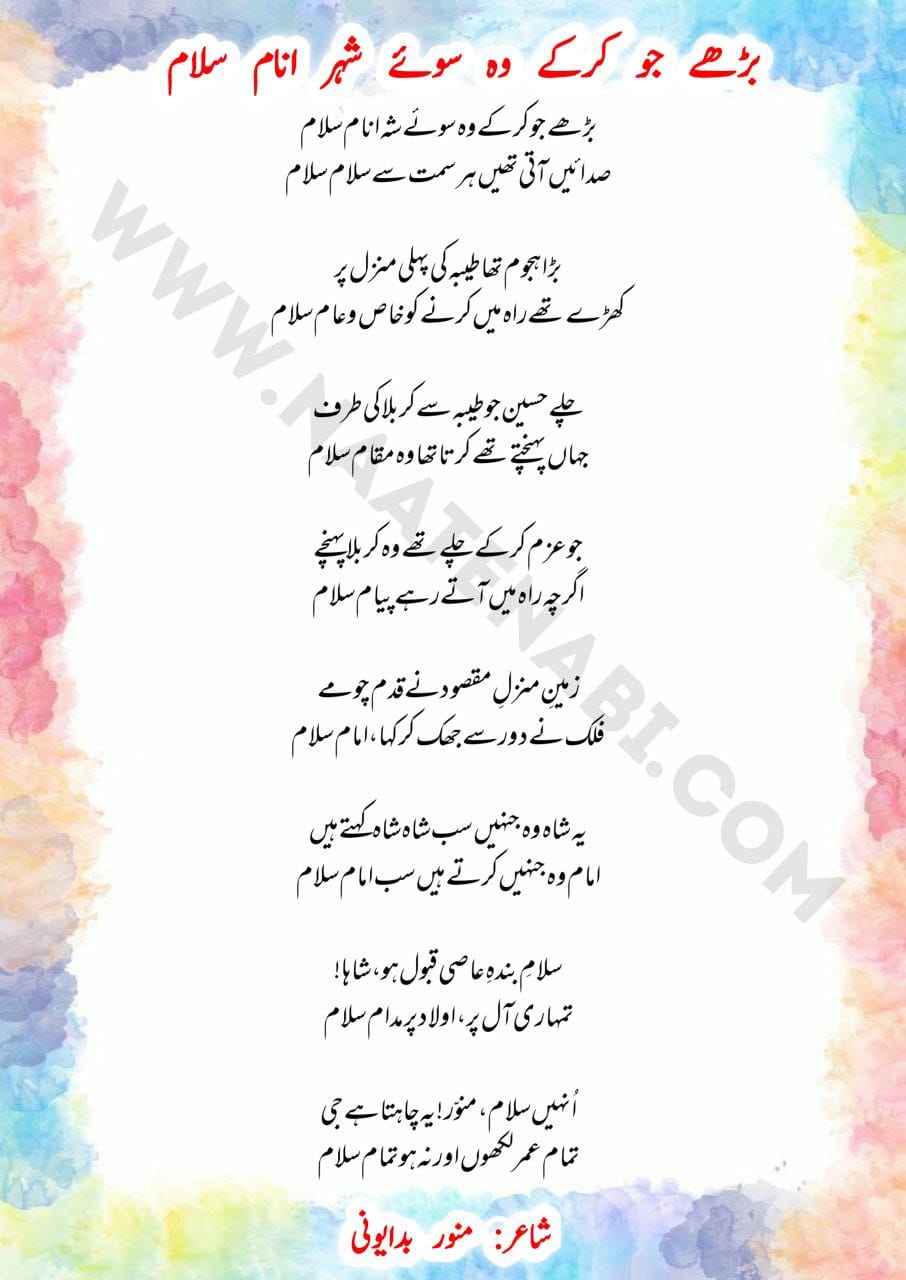 بڑھے جو کرکے وہ سوئے شہر انام سلام
بڑھے جو کرکے وہ سوئے شہ انام سلام
صدائیں آتی تھیں ہر سمت سے سلام سلام
بڑا ہجوم تھا طیبہ کی پہلی منزل پر
کھڑے تھے راہ میں کرنے کو خاص و عام سلام
چلے حسین جو طیبہ سے کربلا کی طرف
جہاں پہنچتے تھے کرتا تھا وہ مقام سلام
جو عزم کرکے چلے تھے وہ کربلا پہنچے
اگرچہ راہ میں آتے رہے پیام سلام
زمینِ منزلِ مقصود نے قدم چومے
فلک نے دور سے جھک کر کہا، امام سلام
یہ شاہ وہ جنہیں سب شاہ شاہ کہتے ہیں
امام وہ جنہیں کرتے ہیں سب امام سلام
سلامِ بندہِ عاصی قبول ہو، شاہا!
تمہاری آل پر، اولاد پر مدام سلام
اُنہیں سلام، منوّر! یہ چاہتا ہے جی
تمام عمر لکھوں اور نہ ہو تمام سلام
شاعر: منور بدایونی
WWW.NAATENABI.COM